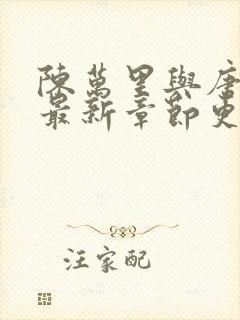 陳萬里與唐
最新章節更
汪家配